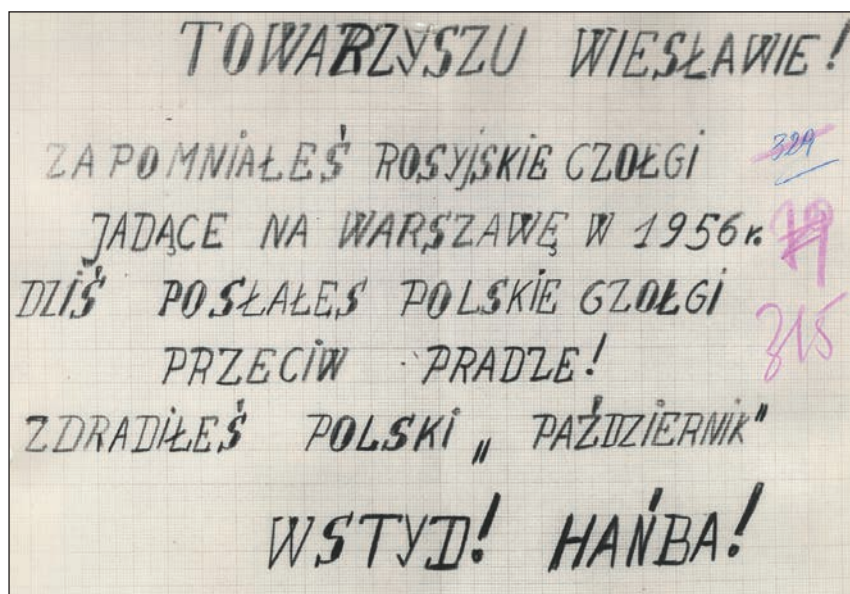 TOWARZYSZU WIESŁAWIE!
ZAPOMNIAŁEŚ ROSYJSKIE CZOŁGI
JADĄCE NA WARSZAWĘ W 1956r.
DZIŚ POSŁAŁEŚ POLSKIE CZOŁGI
PRZECIW PRADZE!
ZDRADIŁEŚ POLSKI „PAŹDZIERNIK"
WSTYD! HAŃBA!
329
79
315